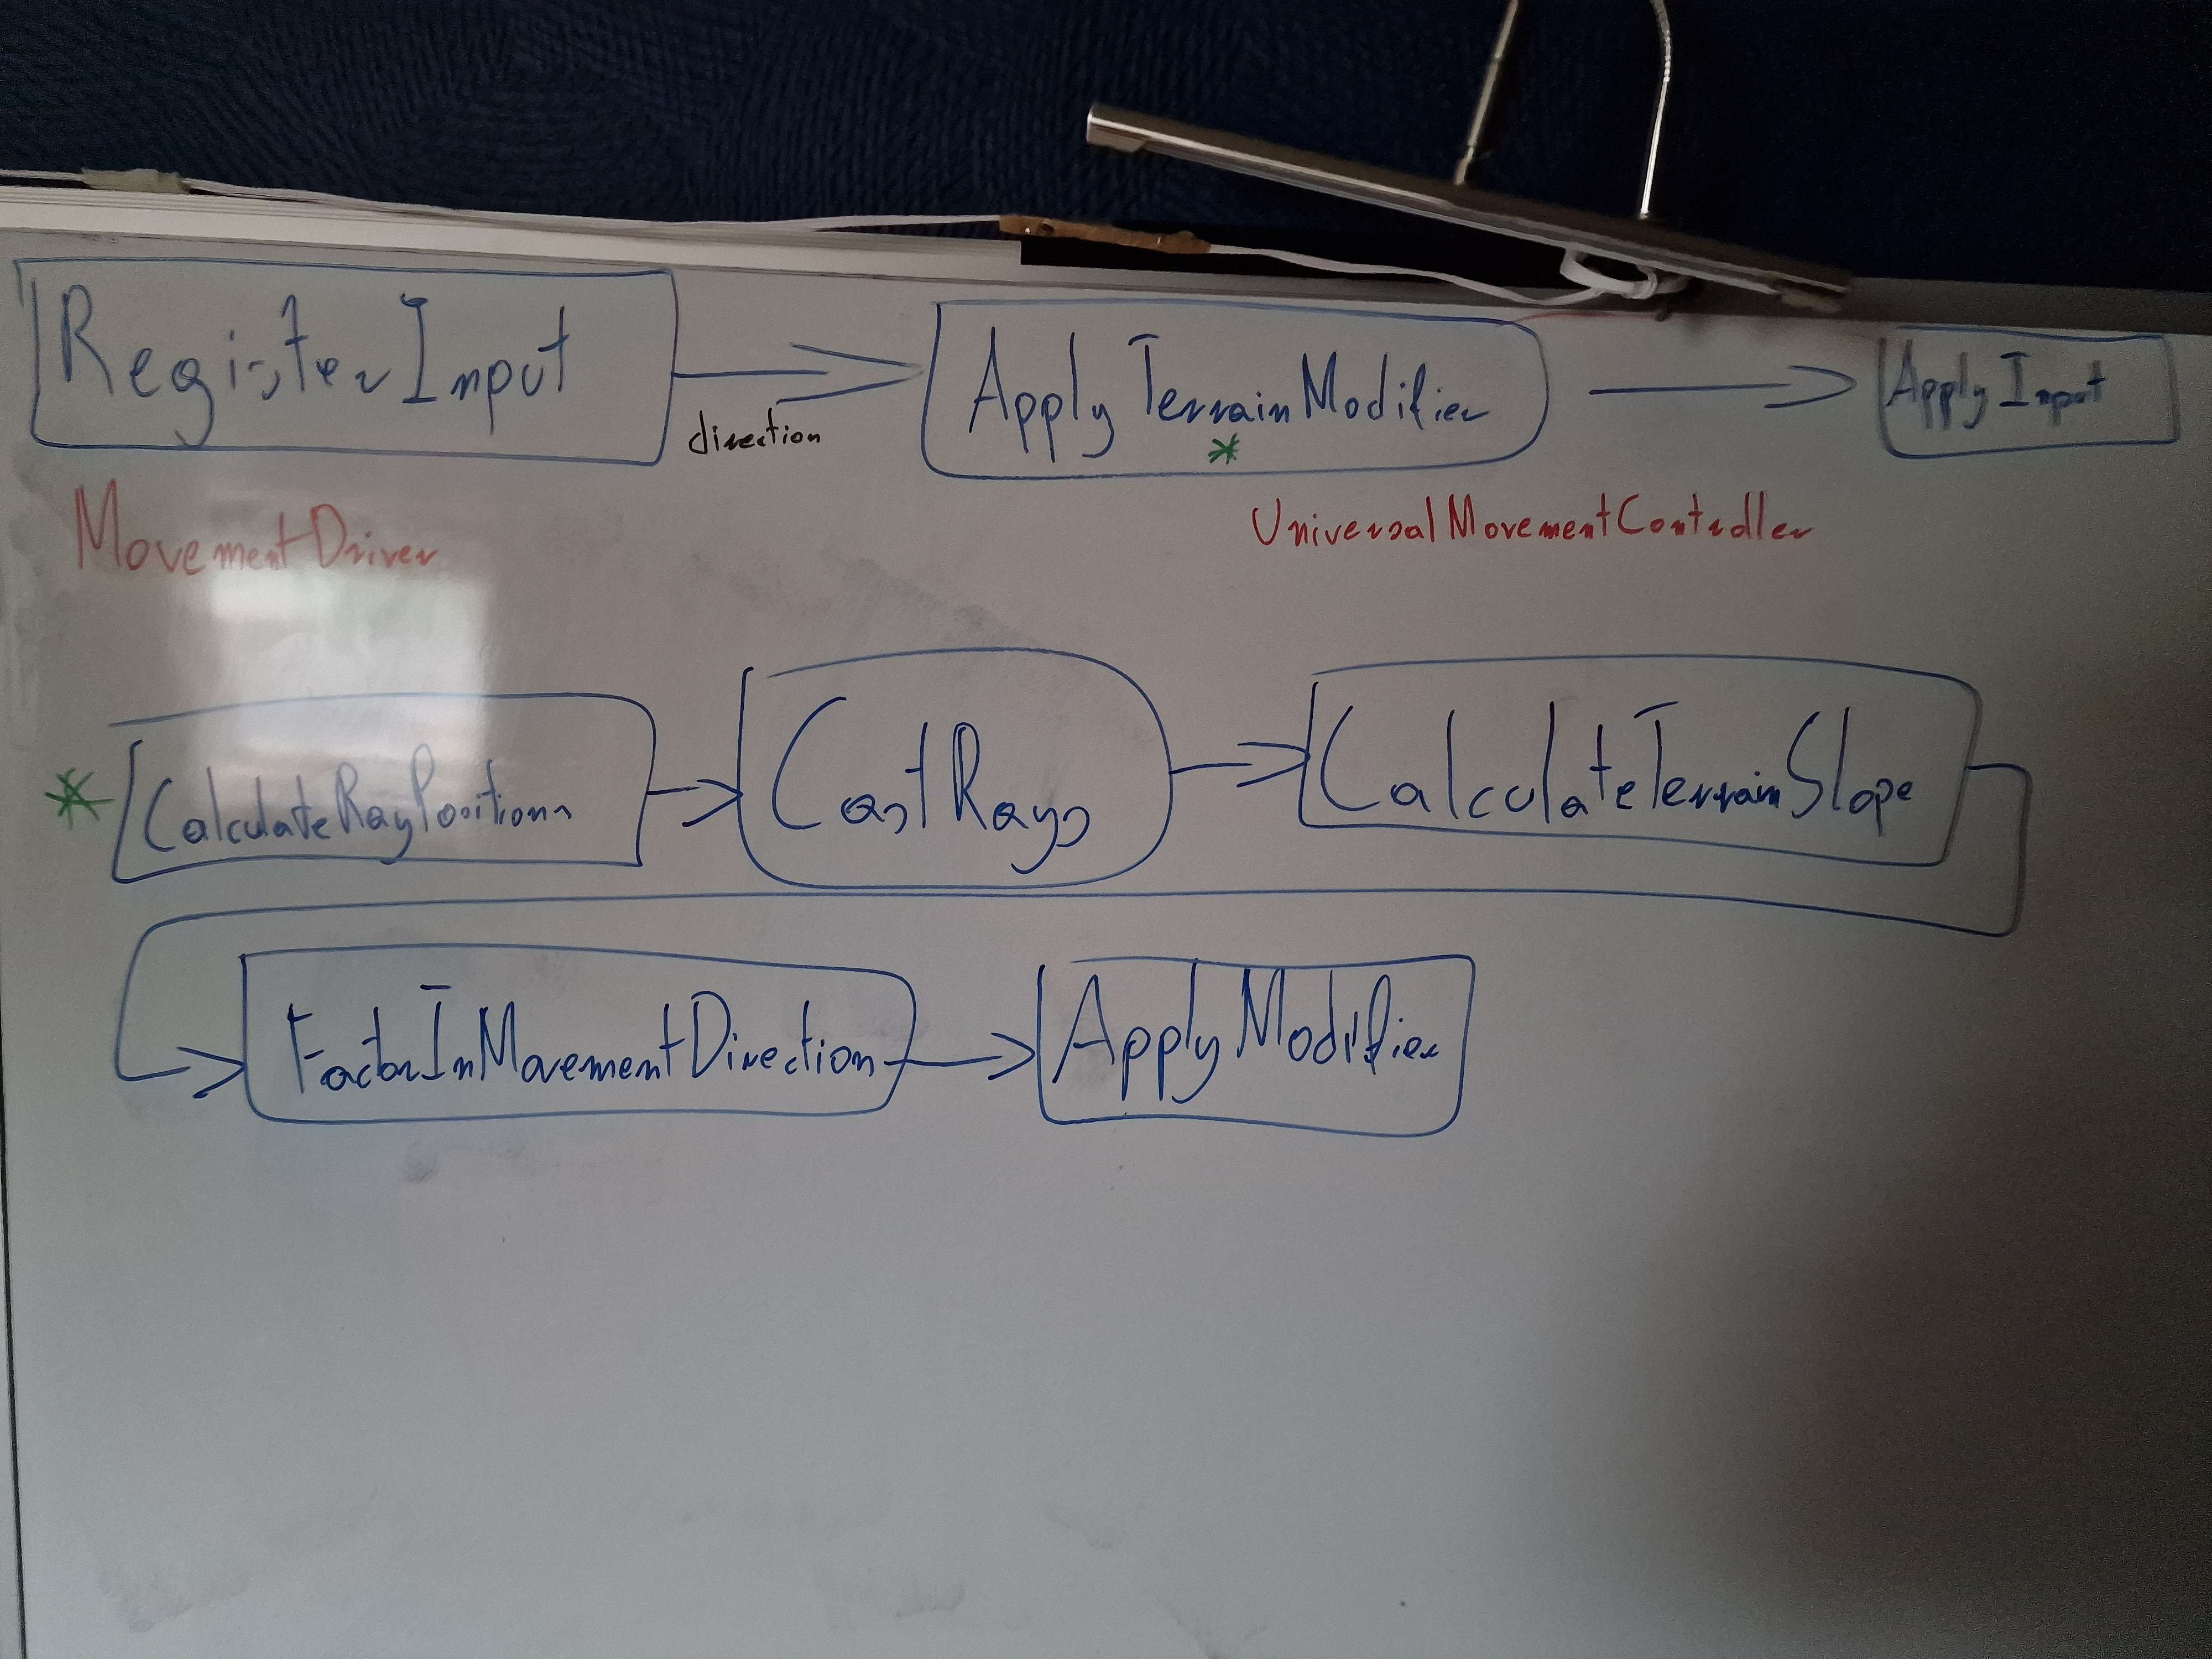 RegisterInput
direction
ApplyTerrainModifier
*
ApplyInput
MovementDriver
UniversalMovementController
* CalculateRayPositions
CastRays
CalculateTerrainSlope
FactorInMovementDirection
ApplyModifier